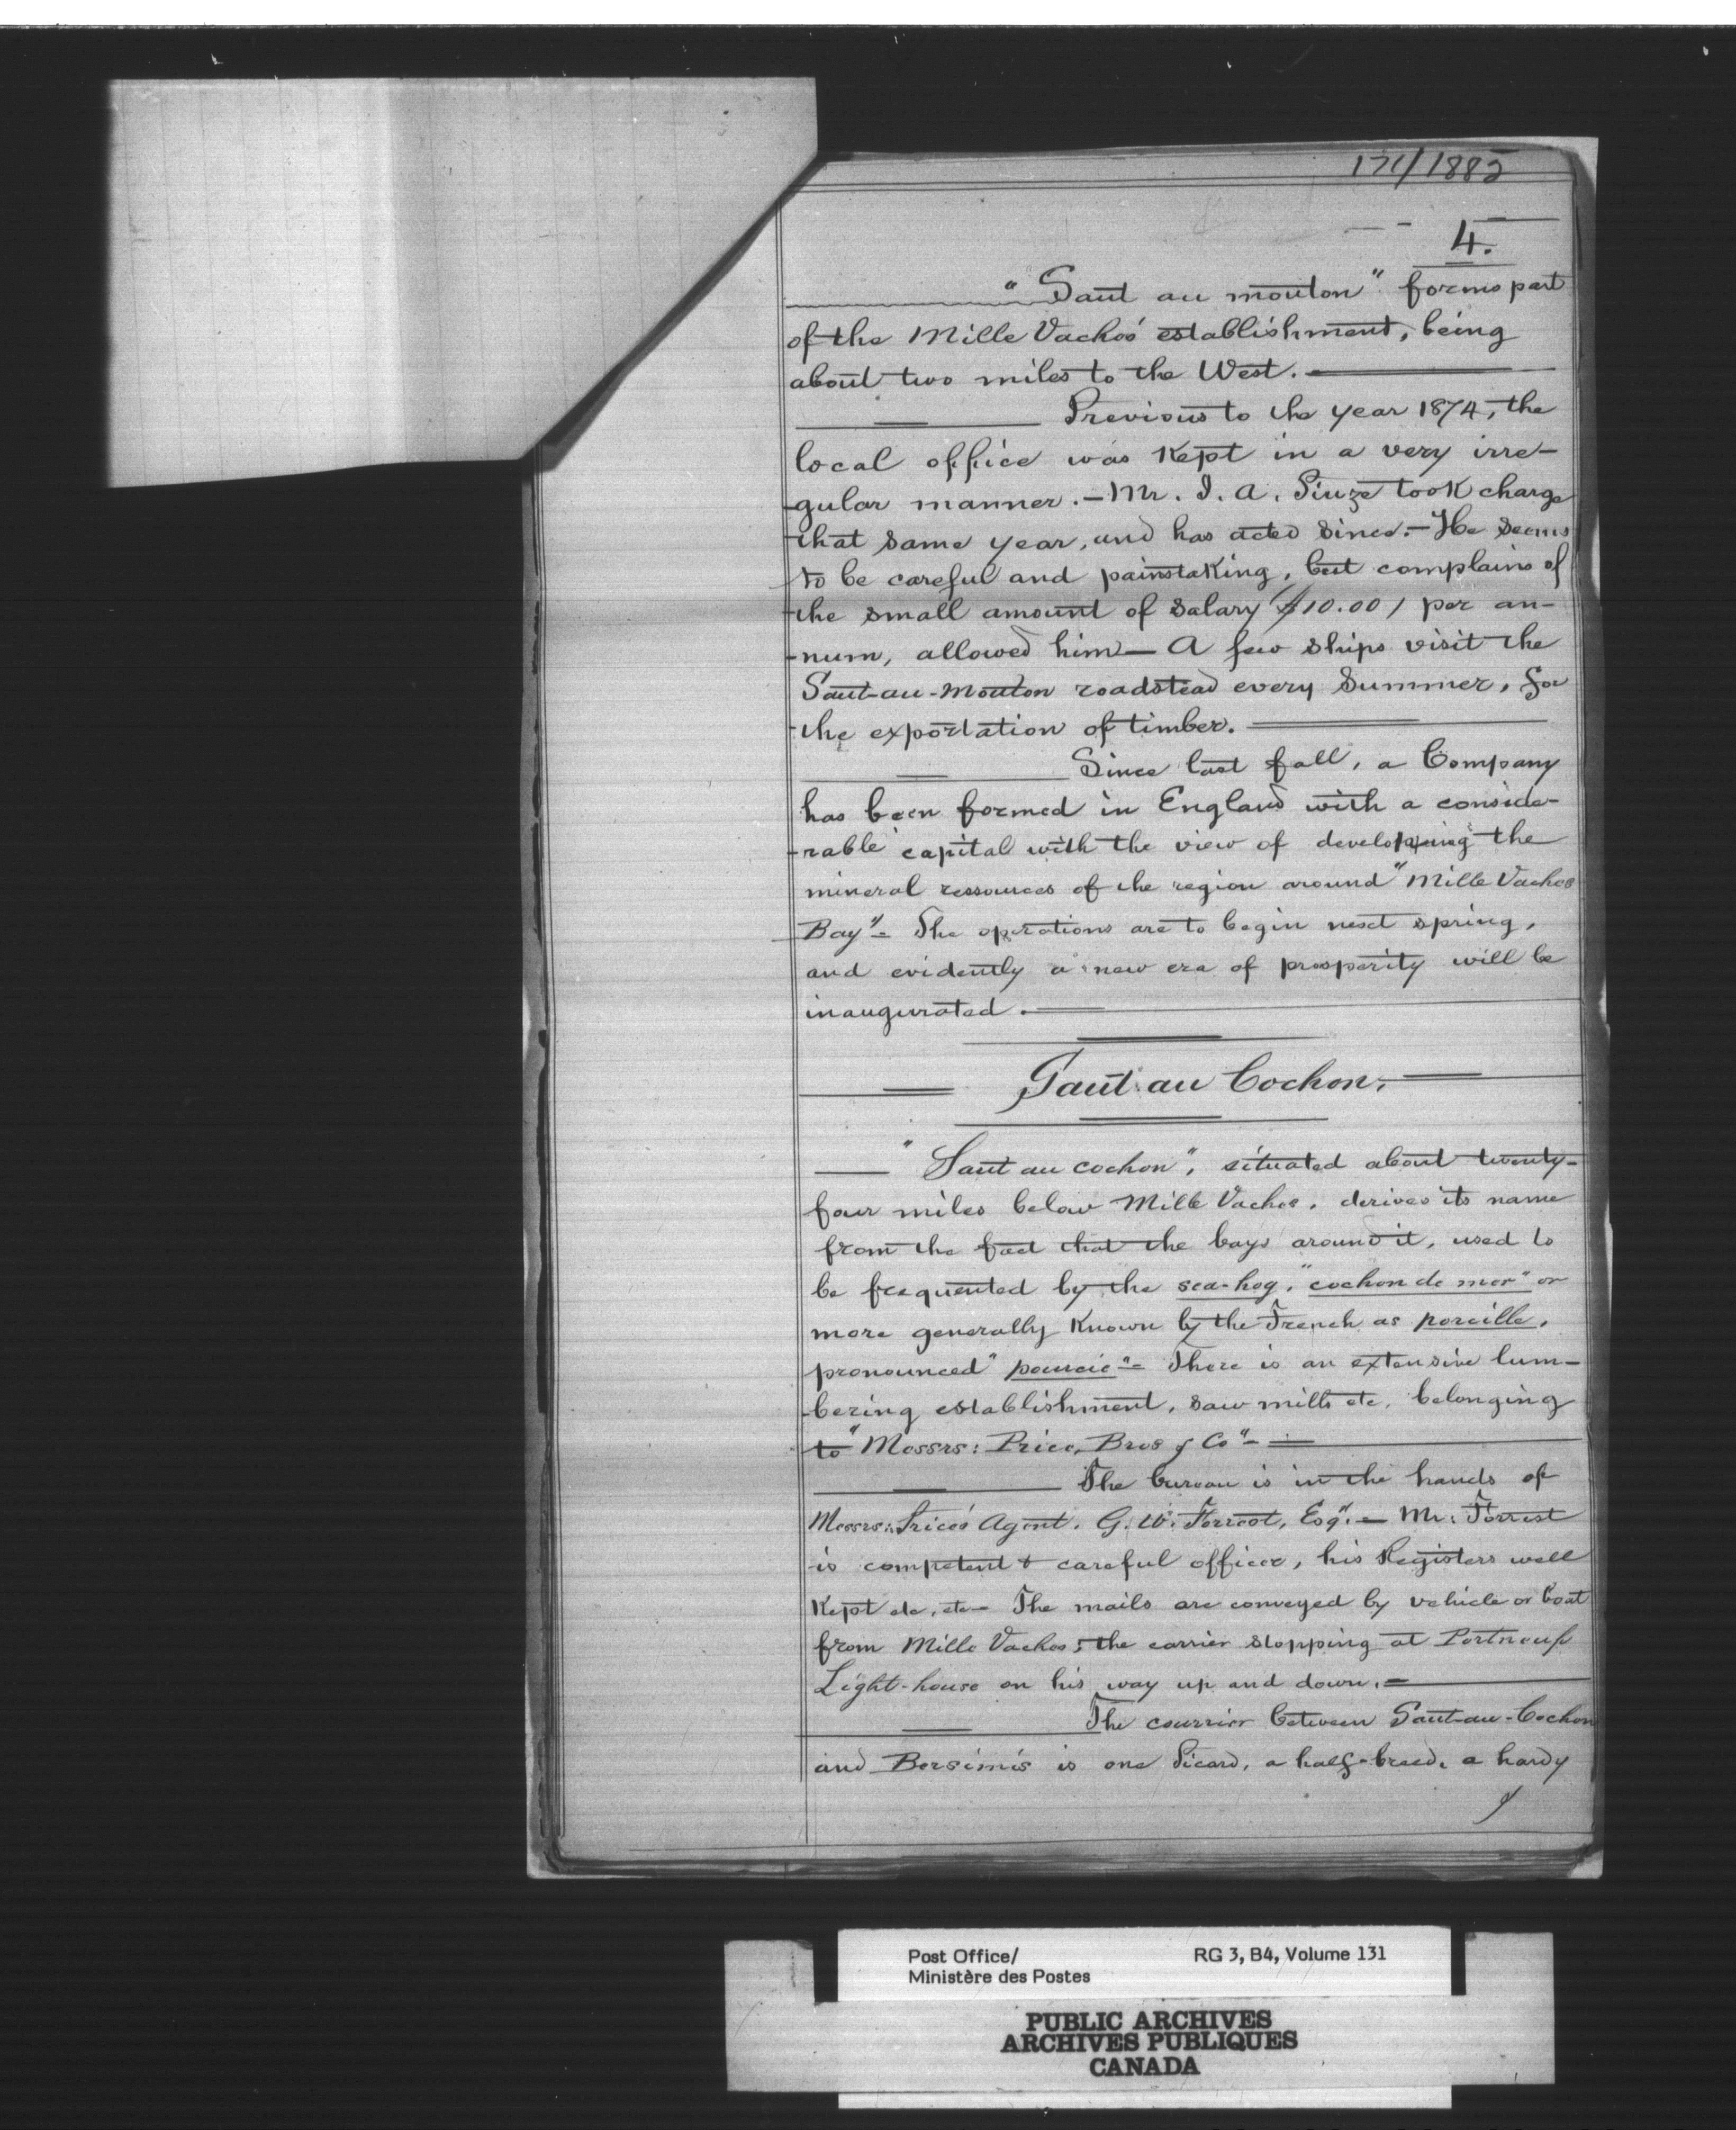 171/1885
4.
"Saut au mouton" forms part
of the Mille Vaches' establishment, being
about two miles to the West.
Previous to the year 1874, the
local office was kept in a very irre-
-gular manner. - Mr. J. A. Siuze took charge
that same year, and has acted since. - He seems
to be careful and painstaking, but complains of
the small amount of salary ($10.00) per an-
-num, allowed him - A few ships visit the
Saut-au-Mouton roadstead every Summer, for
the exportation of timber.
Since last fall, a Company
has been formed in England with a conside-
-rable capital with the view of developping the
mineral ressources of the region around "Mille Vaches
Bay" - The operations are to begin next spring,
and evidently a new era of prosperity will be
inaugurated.
Saut au Cochon.
"Saut au cochon", situated about twenty-
four miles below Mille Vaches, derives its name
from the fact that the bays around it, used to
be frequented by the sea-hog, "cochon de mer" or
more generally known by the French as porcille,
pronounced "pourcie" - There is an extensive lum-
-bering establishment, saw mills etc. belonging
to "Messrs: Price, Bros & Co" -
The bureau is in the hands of
Messrs: Price's Agent, G. W. Forrest, Esq". - Mr: Forrest
is competent & careful officer, his Registers well
kept etc, etc - The mails are conveyed by vehicle or boat
from Mille Vaches; the carrier stopping at Portneuf
Light-house on his way up and down. -
The courrier between Saut-au-Cochon
and Bersimis is one Picard, a half-breed, a hardy
Post Office/ RG 3, B4, Volume 131
Ministère des Postes
PUBLIC ARCHIVES
ARCHIVES PUBLIQUES
CANADA